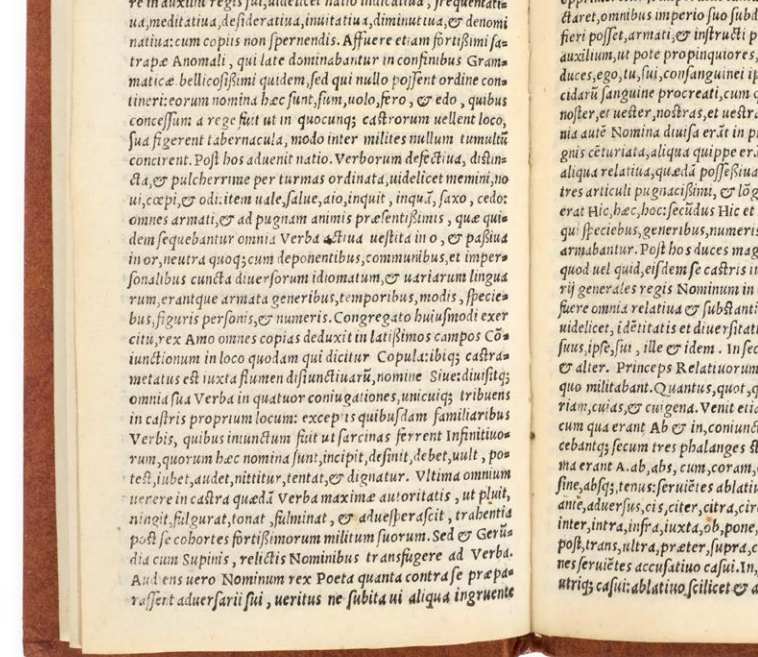 re in auxiliū regis sui, uidelicet natio indicatiua, frequentati⸗
ua, meditatiua, desideratiua, imitatiua, diminutiua, & denomi
natiua: cum copiis non spernendis. Affuere etiam fortißimi sa⸗
trapæ Anomali, qui late dominabantur in confinibus Gram⸗
maticæ bellicosißimi quidem, sed qui nullo possent ordine con⸗
tineri: eorum nomina hæc sunt, sum, uolo, fero, & edo, quibus
concessum a rege fuit ut in quocunq; castrorum uellent loco,
sua figerent tabernacula, modo inter milites nullum tumultū
concirent. Post hos aduenit natio. Verborum defectiua, distin⸗
cta, & pulcherrime per turmas ordinata, uidelicet memini, no
ui, cœpi, & odi: item uale, salue, aio, inquit, inquā, faxo, cedo:
omnes armati, & ad pugnam animis præsentißimis, quæ qui⸗
dem sequebantur omnia Verba actiua uestita in o, & paßiua
in or, neutra quoq; cum deponentibus, communibus, et imper⸗
sonalibus cuncta diuersorum idiomatum, & uariarum lingua
rum, erantque armata generibus, temporibus, modis, specie⸗
bus, figuris personis, & numeris. Congregato huiusmodi exer
citu, rex Amo omnes copias deduxit in latißimos campos Cō⸗
iunctionum in loco quodam qui dicitur Copula: ibiq; castra⸗
metatus est iuxta flumen disiunctiuarū, nomine Siue: diuisitq;
omnia sua Verba in quatuor coniugationes, unicuiq; tribuens
in castris proprium locum: excep is quibusdam familiaribus
Verbis, quibus iniunctum fuit ut sarcinas ferrent Infinitiuo⸗
rum, quorum hæc nomina sunt, incipit, desinit, debet, uult, po⸗
test, iubet, audet, nittitur, tentat, & dignatur. Vltima omnium
uenere in castra quædā Verba maximæ autoritatis, ut pluit,
ningit, fulgurat, tonat, fulminat, & aduesperascit, trahentia
post se cohortes fortißimorum militum suorum. Sed & Gerū⸗
dia cum Supinis, relictis Nominibus transfugere ad Verba.
Audiens uero Nominum rex Poeta quanta contra se præpa⸗
rassent aduersarii sui, ueritus ne subita ui aliqua ingruente
ctaret, omnibus imperio suo subd
fieri posset, armati, & instructi p
auxilium, ut pote propinquiores,
duces, ego, tu, sui, consanguinei ip
cidarū sanguine procreati, cum q
noster, et uester, nostras, et uestra
nia autē Nomina diuisa erāt in p
gnis cēturiata, aliqua quippe erā
aliqua relatiua, quædā possessiua
tres articuli pugnacißimi, & lōg
erat Hic, hæc, hoc: secūdus Hic et
qui speciebus, generibus, numeris
armabantur. Post hos duces mag
quod uel quid, eisdem se castris iu
rij generales regis Nominum in
fuere omnia relatiua & substanti
uidelicet, idētitatis et diuersitati
suus, ipse, sui, ille & idem. In sec
& alter. Princeps Relatiuorum
quo militabant. Quantus, quot, q
riam, cuias, & cuigena. Venit etia
cum qua erant Ab & in, coniunc
cebantq; secum tres phalanges
ma erant A. ab, abs, cum, coram,
sine, absq;, tenus: seruiētes ablatiu
ante, aduersus, cis, citer, citra, circ
inter, intra, infra, iuxta, ob, pone,
post, trans, ultra, præter, supra, c
nes seruiētes accusatiuo casui. In,
utriq; casui: ablatiuo, scilicet & a